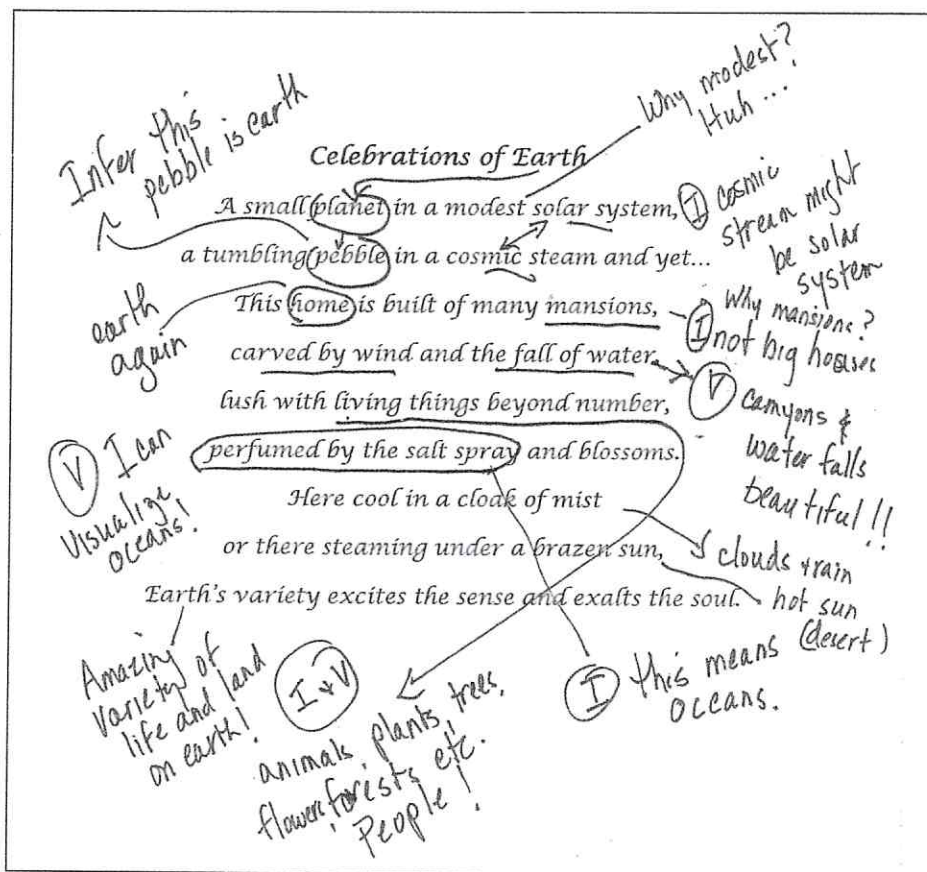 Why modest?
Huh ...
Infer this
pebble is earth
Celebrations of Earth
A small planet in a modest solar system,
a tumbling pebble in a cosmic steam and yet...
This home is built of many mansions,
carved by wind and the fall of water
lush with living things beyond number,
perfumed by the salt spray and blossoms.
Here cool in a cloak of mist
or there steaming under a brazen sun,
Earth's variety excites the sense and exalts the soul.
I cosmic
stream might
be solar
system
earth
again
Why mansions?
I not big houses
V canyons &
water falls
beautiful!!
V I can
visualize
oceans!
clouds + rain
hot sun
(desert)
Amazing
variety of
life and land
on earth!
I + V
animals, plants, trees,
flowers, forests, etc.
People!
I this means
oceans.